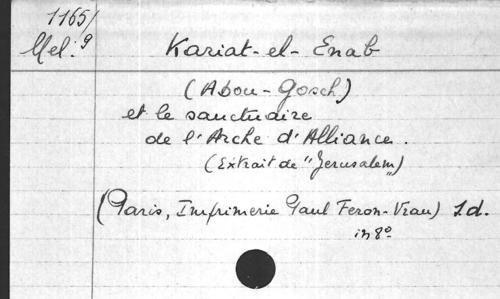 1165/
Mel: 9
Kariat-el-Enab
(Abou-Gosch)
et le sanctuaire
de l'Arche d'Alliance.
(Extrait de "Jerusalem")
(Paris, Imprimerie Paul Feron-Vrau) S.d.
in 8°